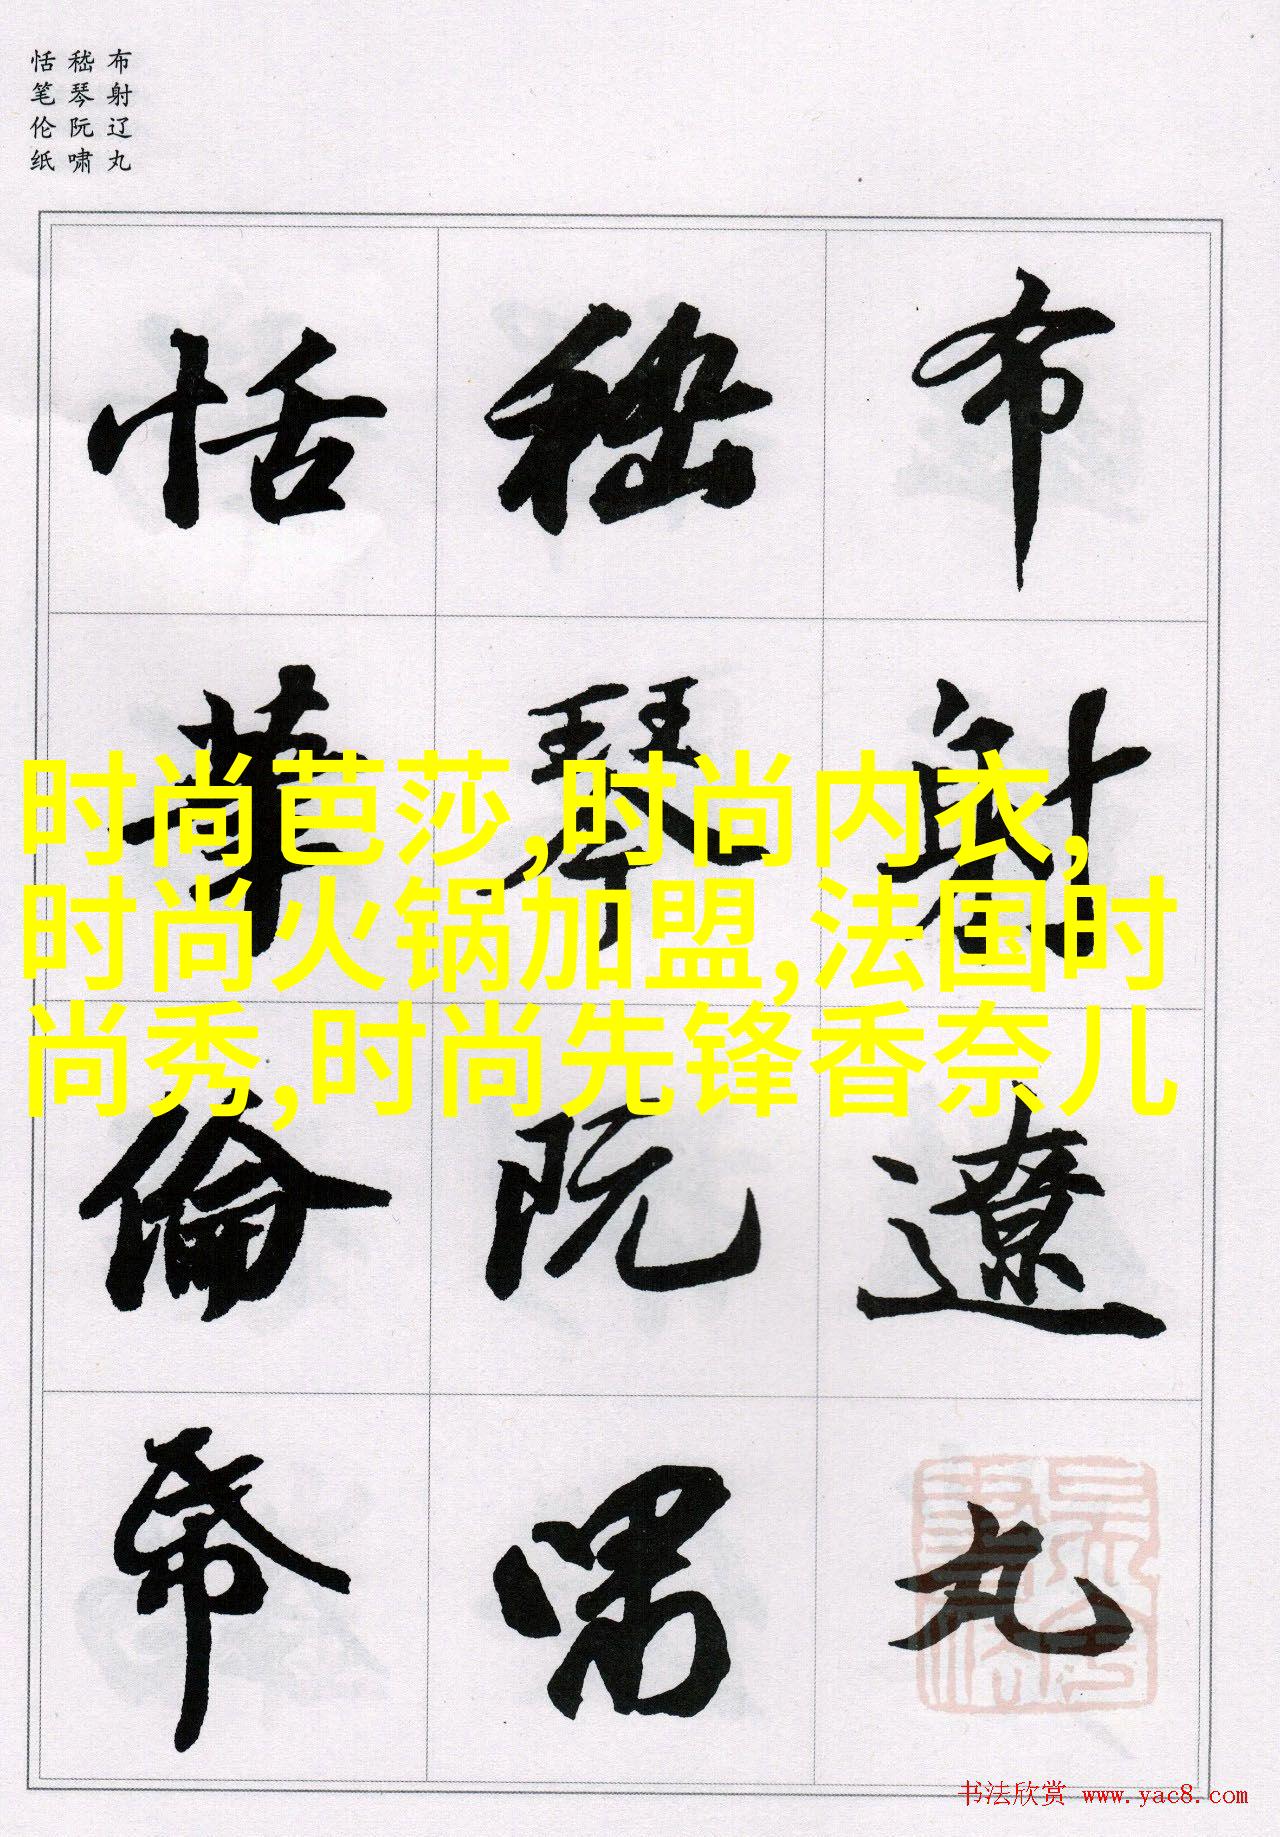 布射辽丸
嵇琴阮啸
恬笔伦纸
布射遼丸
嵇琴阮嘯
恬筆倫帋
时尚芭莎,时尚内衣,
时尚火锅加盟,法国时
尚秀,时尚先锋香奈儿
书法欣赏 www.yac8.com